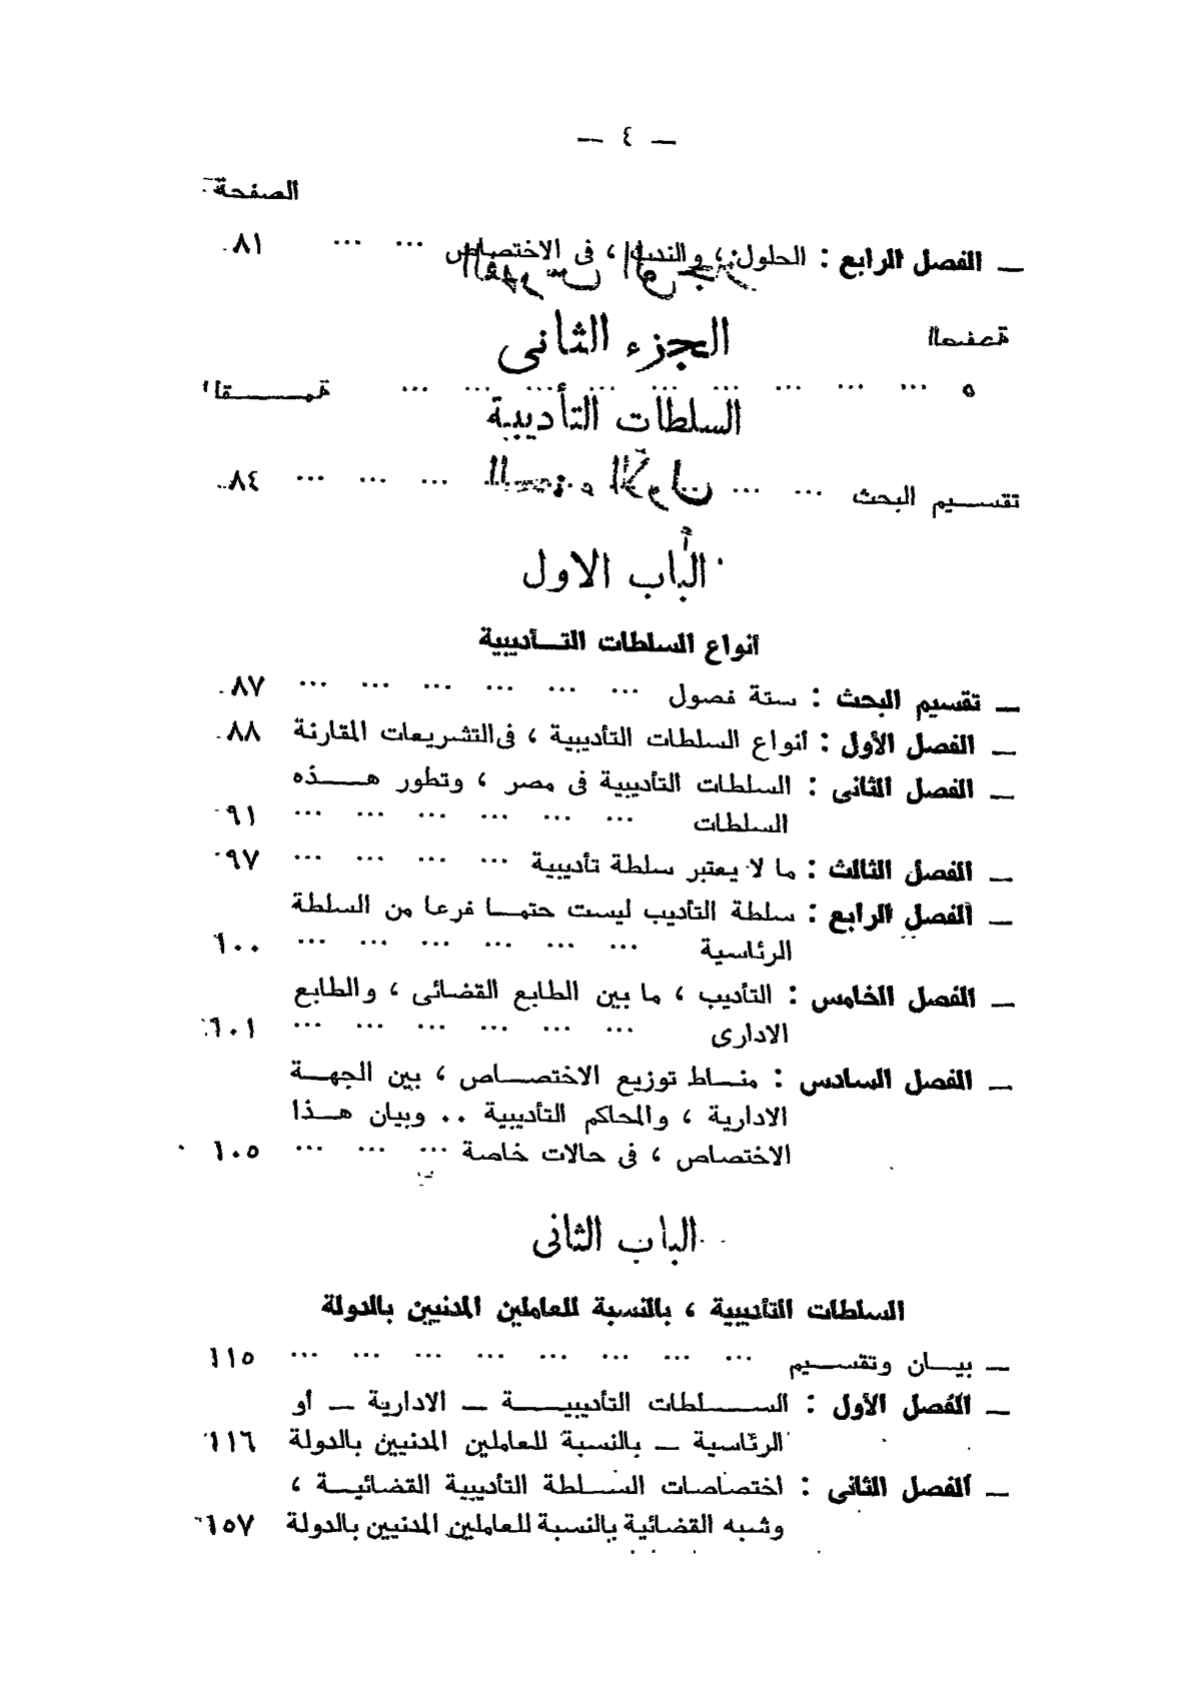 — ٤ —
الصفحة
— الفصل الرابع : الحلول ، والندب ، فى الاختصاص ... ... ٨١
الجزء الثانى
السلطات التأديبية
تقســيم البحث ... ... ... ... ... ... ٨٤
الباب الاول
أنواع السلطات التــأديبية
— تقسيم البحث : ستة فصول ... ... ... ... ... ... ٨٧
— الفصل الأول : أنواع السلطات التأديبية ، فى التشريعات المقارنة ٨٨
— الفصل الثانى : السلطات التأديبية فى مصر ، وتطور هـــذه
السلطات ... ... ... ... ... ... ٩١
— الفصل الثالث : ما لا يعتبر سلطة تأديبية ... ... ... ... ٩٧
— الفصل الرابع : سلطة التأديب ليست حتمــا فرعا من السلطة
الرئاسية ... ... ... ... ... ... ١٠٠
— الفصل الخامس : التأديب ، ما بين الطابع القضائى ، والطابع
الادارى ... ... ... ... ... ... ١٠١
— الفصل السادس : منــاط توزيع الاختصــاص ، بين الجهــة
الادارية ، والمحاكم التأديبية .. وبيان هــذا
الاختصاص ، فى حالات خاصة ... ... ... ١٠٥
الباب الثانى
السلطات التأديبية ، بالنسبة للعاملين المدنيين بالدولة
— بيــان وتقســيم ... ... ... ... ... ... ... ... ١١٥
— الفصل الأول : الســـلطات التأديبيـــة — الادارية — أو
الرئاسية — بالنسبة للعاملين المدنيين بالدولة ١١٦
— الفصل الثانى : اختصاصات الســلطة التأديبية القضائيــة ،
وشبه القضائية بالنسبة للعاملين المدنيين بالدولة ١٥٧